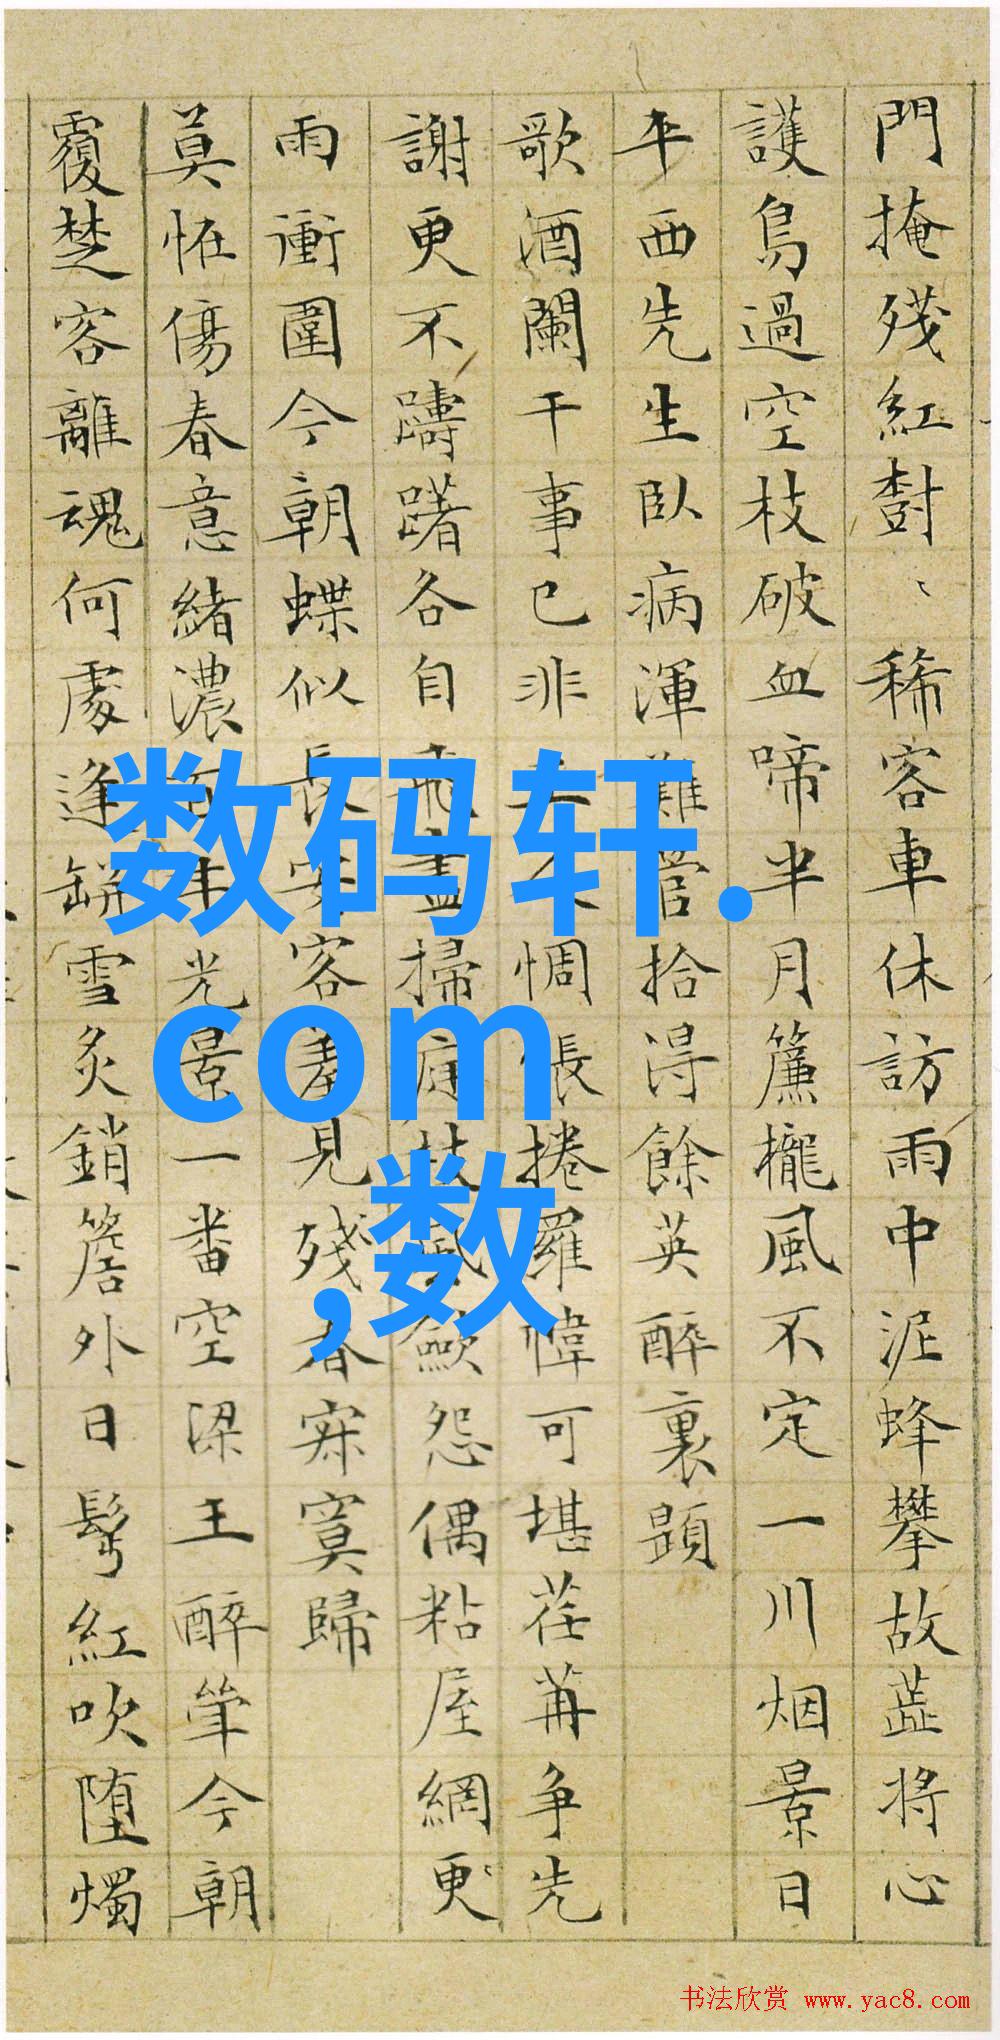 門掩殘紅樹〻稀客車休訪雨中泥蜂攀故蕋將心
護鳥過空枝破血啼半月簾櫳風不定一川烟景日
平西先生臥病渾難管拾得餘英醉裏題
歌酒闌干事已非惆悵捲羅幃可堪荏苒爭先
謝更不躊躇各自飛盡掃庭枝風歛怨偶粘屋網更
雨衝圍今朝蝶似長安客羞見殘春寂寞歸
莫怪傷春意緒濃百年光景一番空梁王醉筆今朝
覆楚客離魂何處逢缾雪炙銷簷外日髩紅吹墮燭
数码轩.
com
,数
书法欣赏 www.yac8.com